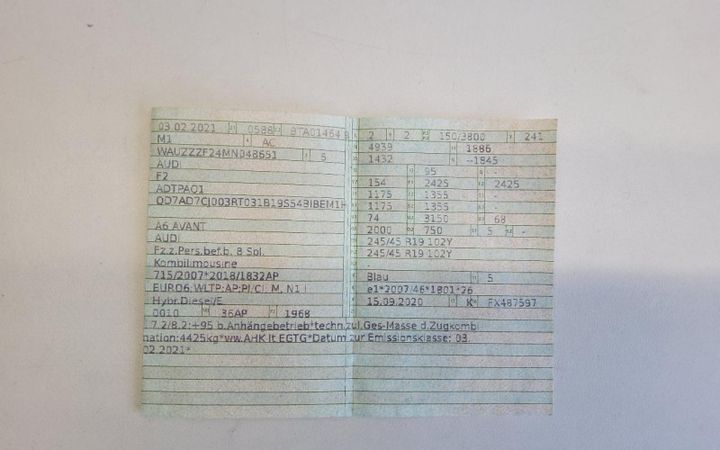 03.02.2021 0588 BTA01464 8
M1 AC
WAUZZZF24MN048651 5
AUDI
F2
ADTPAQ1
QD7AD7CJ003RT031B19S54BIBEM1H
A6 AVANT
AUDI
Fz.z.Pers.bef.b. 8 Spl.
Kombilimousine
715/2007*2018/1832AP
EURO6;WLTP:AP:PI/CI: M, N1 I
Hybr.Diesel/E
0010 36AP 1968
2 2 150/3800 241
4939 1886
1432 --1845
95 -
154 2425 2425
1175 1355 -
1175 1355 -
74 3150 68
2000 750 5 -
245/45 R19 102Y
245/45 R19 102Y
Blau 5
e1*2007/46*1801*26
15.09.2020 K FX487597
7.2/8.2:+95 b.Anhängebetrieb*techn.zul.Ges-Masse d.Zugkombi
nation:4425kg*ww.AHK lt EGTG*Datum zur Emissionsklasse: 03.
02.2021*